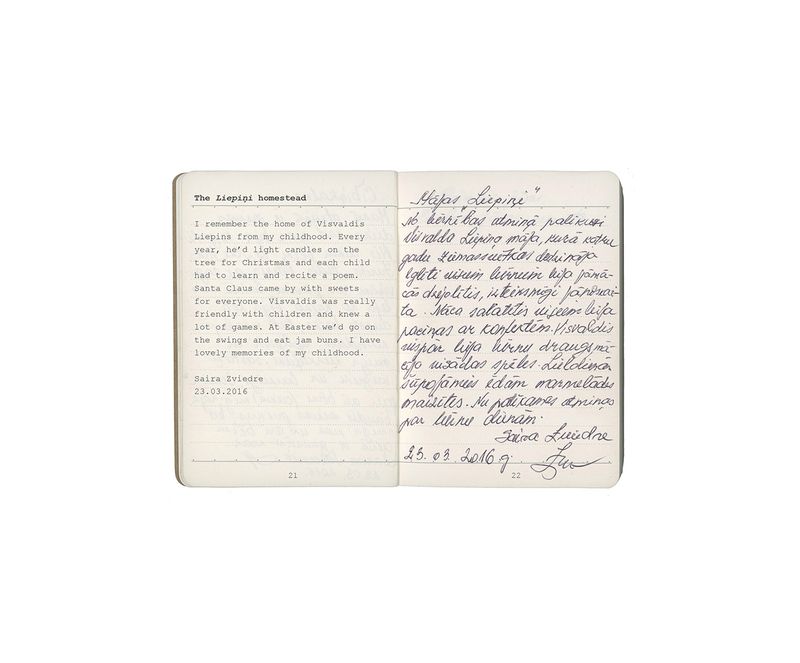 The Liepiņi homestead
I remember the home of Visvaldis
Liepins from my childhood. Every
year, he'd light candles on the
tree for Christmas and each child
had to learn and recite a poem.
Santa Claus came by with sweets
for everyone. Visvaldis was really
friendly with children and knew a
lot of games. At Easter we'd go on
the swings and eat jam buns. I have
lovely memories of my childhood.
Saira Zviedre
23.03.2016
21
Mājas "Liepiņi"
No bērnības atmiņā palikusi
Visvalda Liepiņa māja, kurā katru
gadu Ziemassvētkos dedzināja
eglīti visiem bērniem bija jāmā-
cās dzejolītis, izteiksmīgi jānoskai-
ta. Nāca salatētis visiem bija
paciņas ar konfektēm. Visvaldis
vispār bija bērnu draugs,
visādas spēles. Lieldienās
šūpojāmies ēdām marmelādes
maizītes. Nu patīkamas atmiņas
par bērnu dienām.
Saira Zviedre
23.03.2016.g.
22